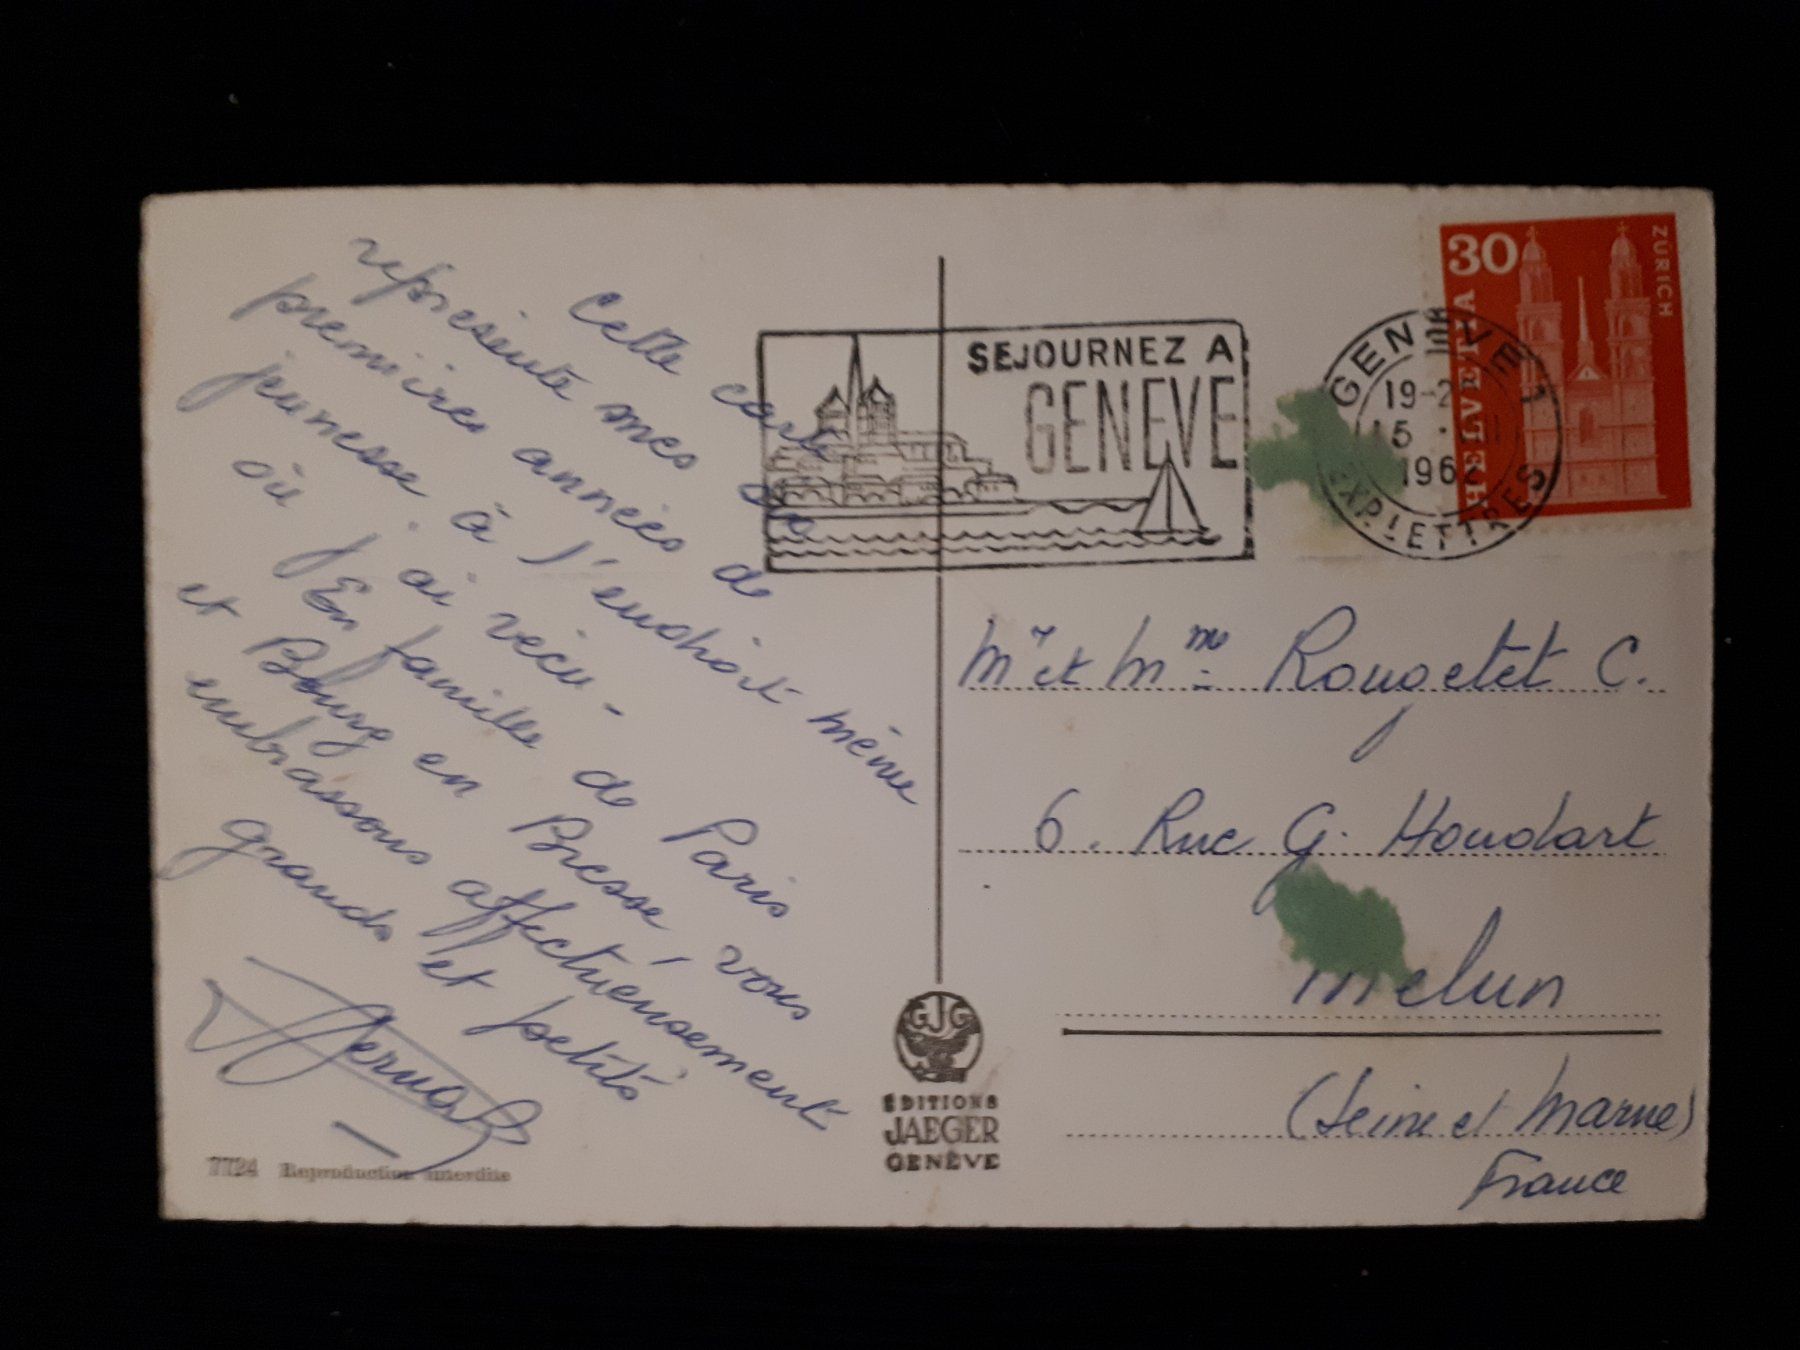 Cette carte
représente mes 20
premières années de
jeunesse à l'endroit même
où j'ai vécu -
En famille de Paris
et Bourg en Bresse, vous
embrassons affectueusement
grands et petits
SEJOURNEZ A
GENEVE
GENEVE 1
19-2
15
1962
EXP. LETTRES
30
HELVETIA
ZÜRICH
Mr et Mme Rougetet C.
6. Rue G. Houdart
Melun
(Seine et Marne)
France
GJG
ÉDITIONS
JAEGER
GENÈVE
7724 Reproduction interdite